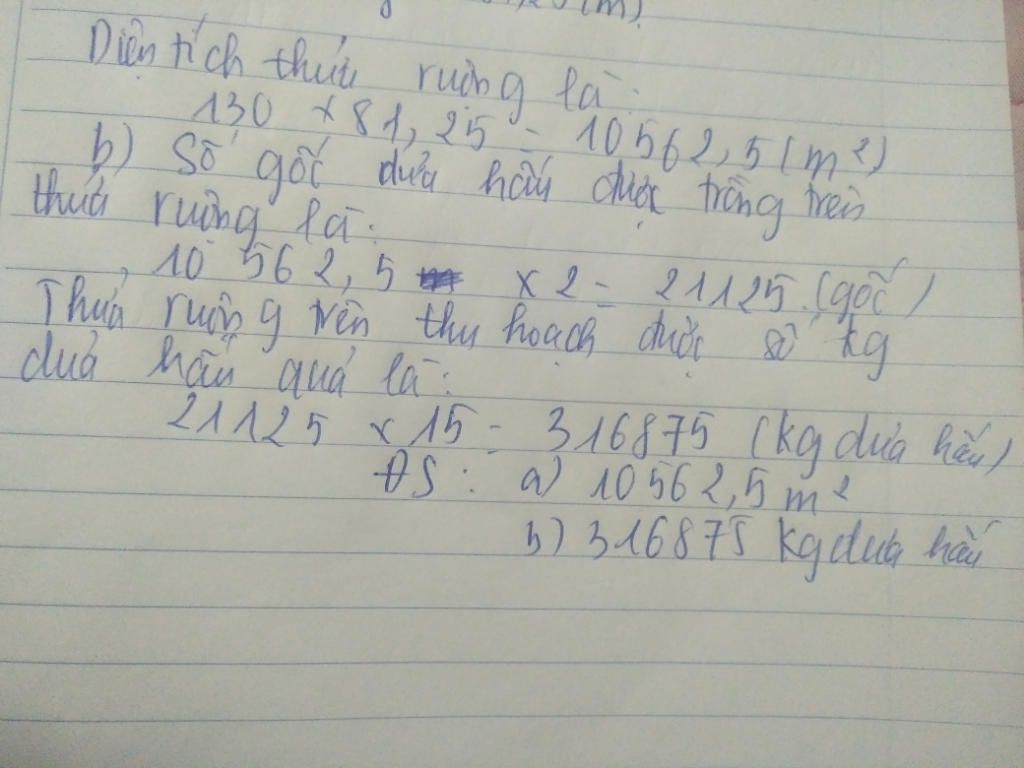 (m)
Diện tích thửa ruộng là:
130 x 81,25 = 10562,5 (m²)
b) Số gốc dưa hấu được trồng trên
thửa ruộng là:
10 562,5 x 2 = 21125 (gốc)
Thửa ruộng trên thu hoạch được số kg
dưa hấu quả là:
21125 x 15 = 316875 (kg dưa hấu)
ĐS: a) 10562,5 m²
b) 316875 kg dưa hấu